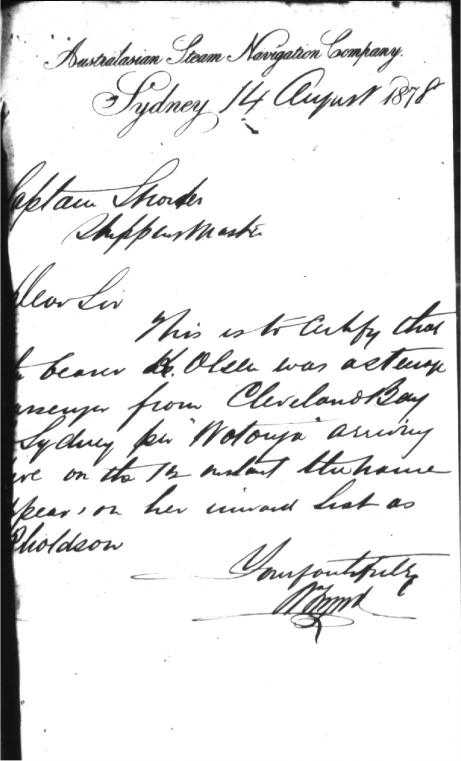 Australasian Steam Navigation Company.
Sydney 14 August 1878
aptain
Shipping Master
Dear Sir
This is to Certify that
bearer H. Olsen was a steerage
assenger from Cleveland Bay
Sydney per "Wotonga" arriving
ere on the 12 instant the name
ppears on her inward List as
holdson
Yours faithfully